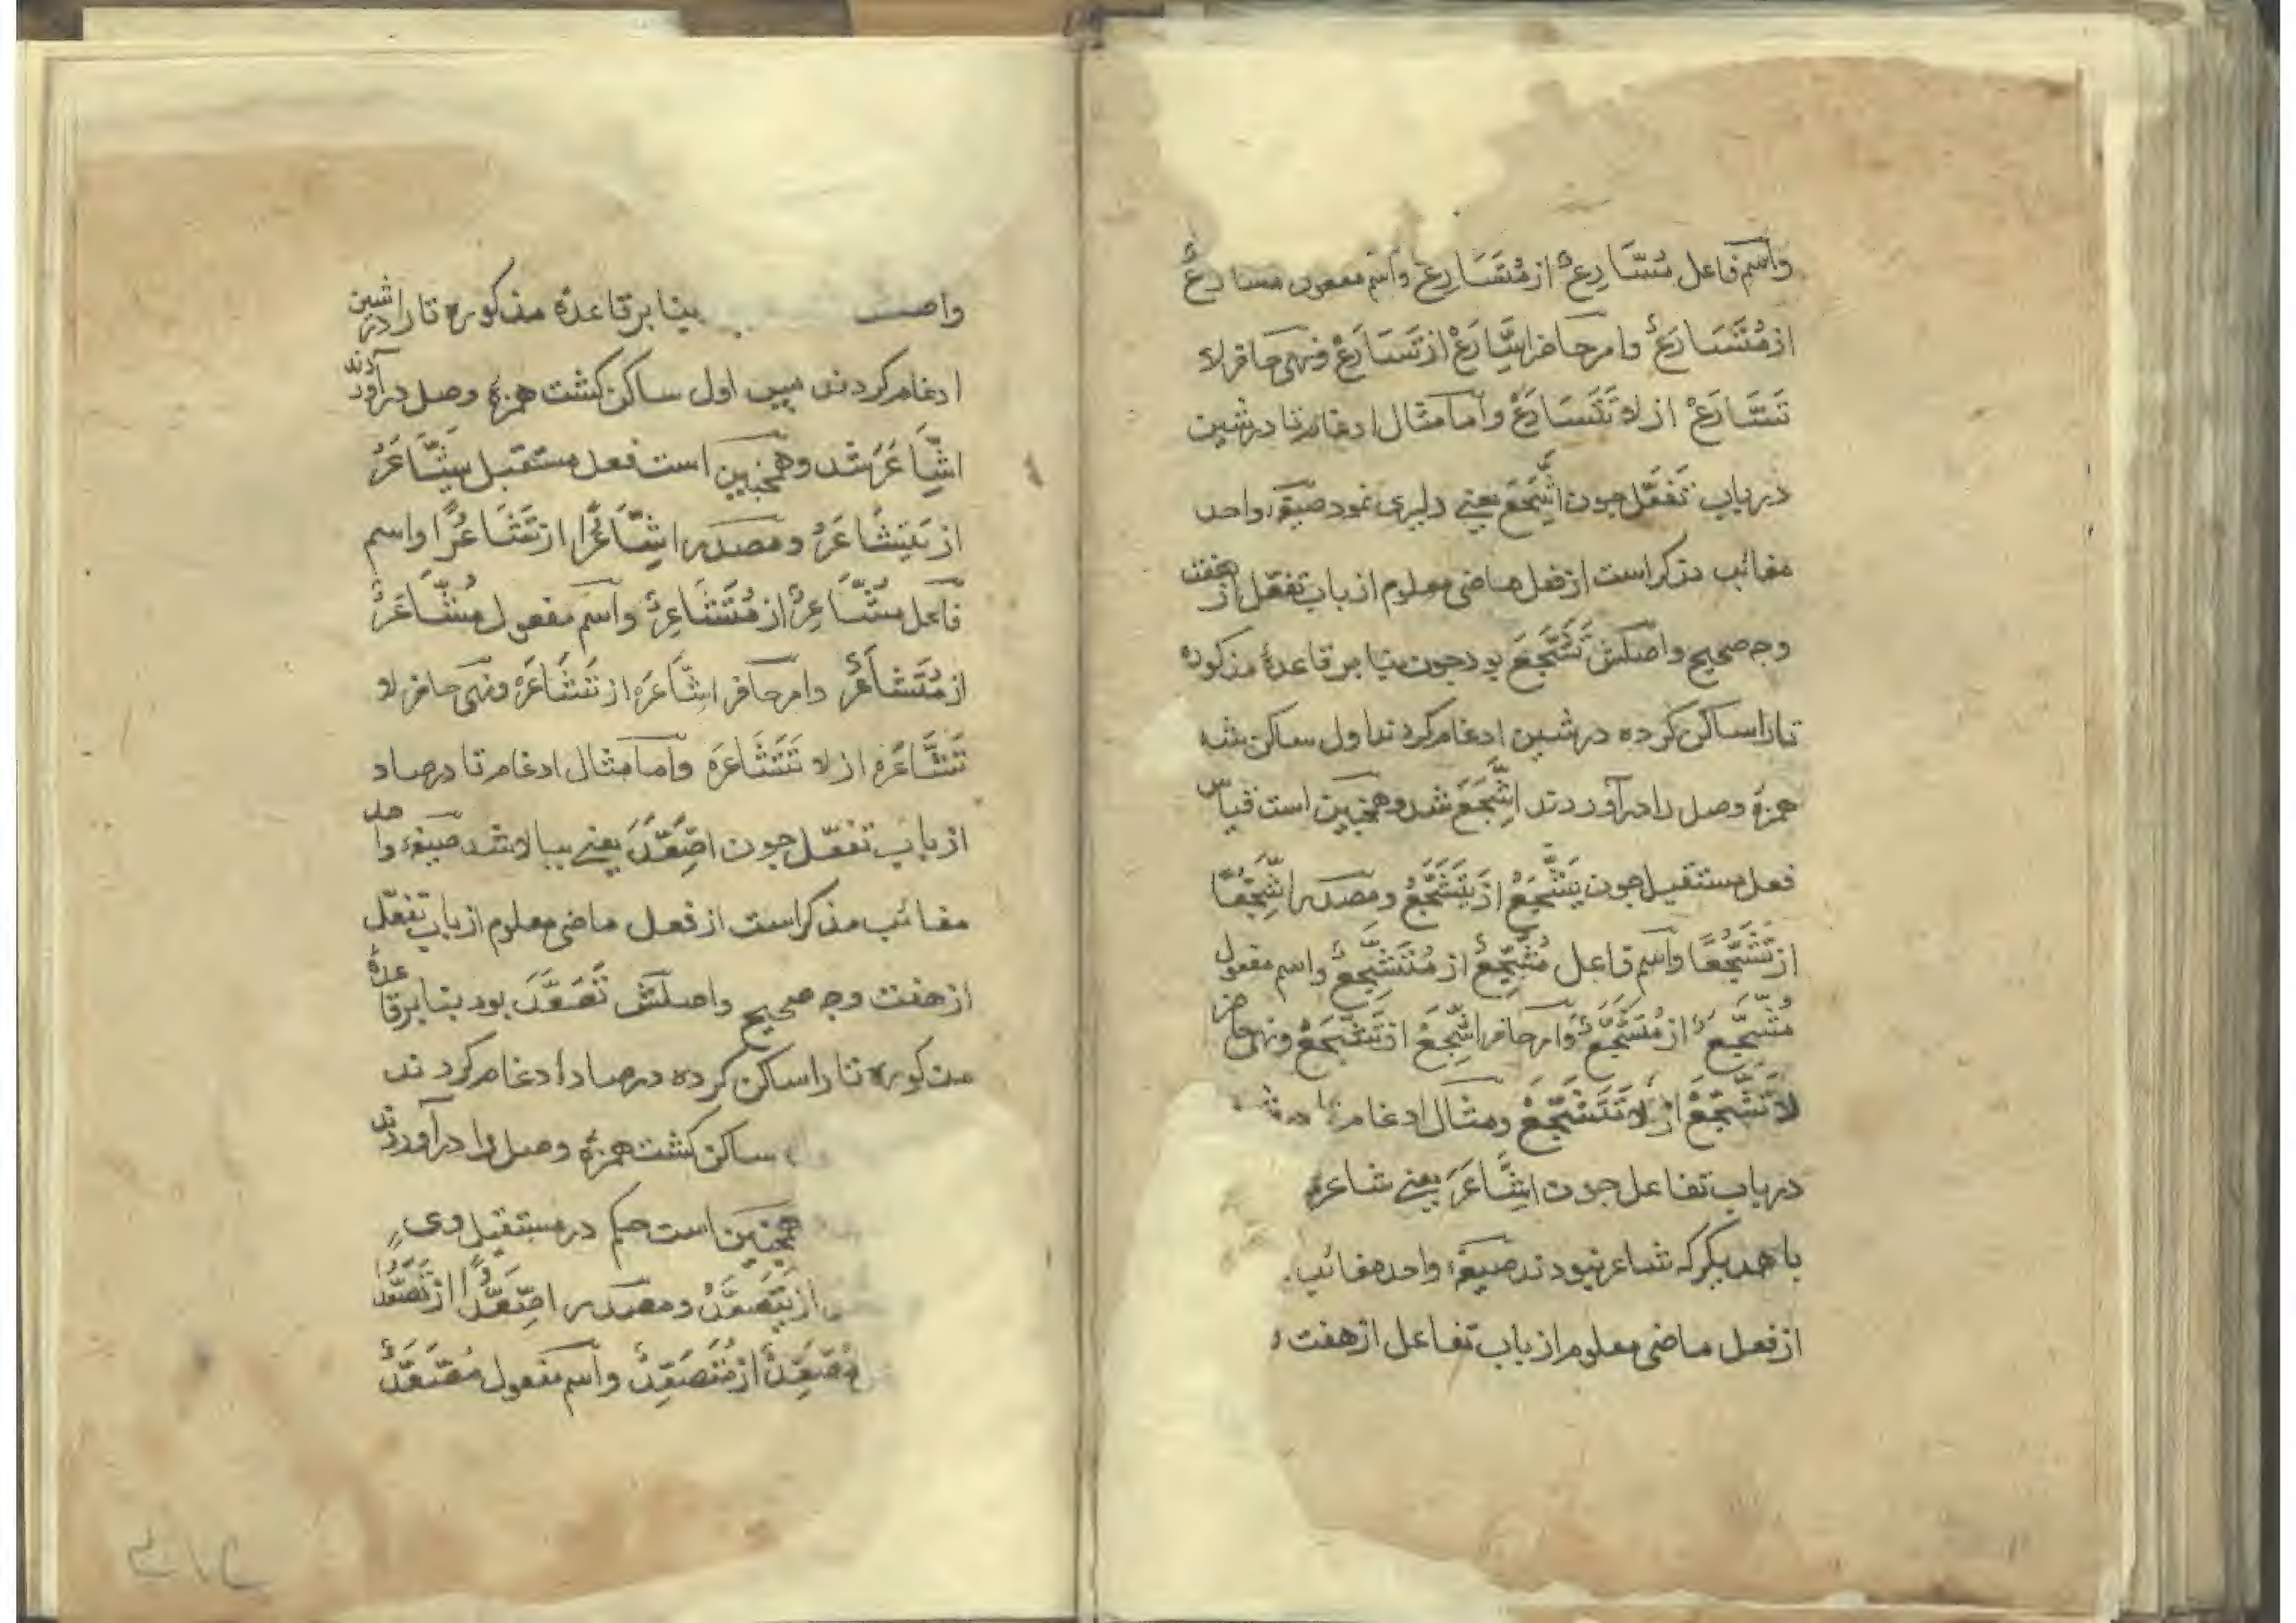 واسم فاعل مُسَّارِعٌ از مُتَسَارِعٌ واسم مفعول مسارعٌ
از مُتَسَارَعٌ وامر حاضر اِسَّارَعْ از تَسَارَعْ ونهی حاضر لا
تَسَّارَعْ از لا تَتَسَارَعْ واما مثال ادغام تا در شین
در باب تَفَعّل چون اشَّجَّعَ یعنے دلیری نمود صیغهٔ واحد
مغائب مذکر است از فعل ماضی معلوم از باب تفعّل از هفت
وجه صحیح واصلش تَشَجَّعَ بود چون بنا بر قاعدهٔ مذکوره
تا را ساکن کرده در شین ادغام کردند اول ساکن شد
همزهٔ وصل را درآوردند اشَّجَّعَ شد وهمچنین است قیاس
فعل مستقبل چون یَشَّجَّعُ از یَتَشَجَّعُ ومصدر اشَّجُّعًا
از تَشَجُّعًا واسم فاعل مُشَّجِّعٌ از مُتَشَجِّعٌ واسم مفعول
مُشَّجَّعٌ از مُتَشَجَّعٌ وامر حاضر اِشَّجَّعْ از تَشَجَّعْ ونهی حاضر
لا تَشَّجَّعْ از لا تَتَشَجَّعْ ومثال ادغام تا در
در باب تفاعل چون اِشَّاعَرَ یعنے شاعری
با همدیگر که شاعر نبودند صیغهٔ واحد مغائب
از فعل ماضی معلوم از باب تفاعل از هفت
بنا بر قاعدهٔ مذکوره تا را در شین
ادغام کردند پس اول ساکن کشت همزهٔ وصل درآوردند
اشَّاعَرَ شد وهمچنین است فعل مستقبل یَشَّاعَرُ
از یَتَشَاعَرُ ومصدر اشَّاعُرًا از تَشَاعُرًا واسم
فاعل مُشَّاعِرٌ از مُتَشَاعِرٌ واسم مفعول مُشَّاعَرٌ
از مُتَشَاعَرٌ وامر حاضر اِشَّاعَرْ از تَشَاعَرْ ونهی حاضر لا
تَشَّاعَرْ از لا تَتَشَاعَرْ واما مثال ادغام تا در صاد
از باب تفعّل چون اصَّعَّدَ یعنے ببالا شد صیغهٔ واحد
مغائب مذکر است از فعل ماضی معلوم از باب تفعّل
از هفت وجه صحیح واصلش تَصَعَّدَ بود بنا بر قاعدهٔ
مذکوره تا را ساکن کرده در صاد ادغام کردند
ساکن کشت همزهٔ وصل را درآوردند
همچنین است حکم در مستقبل وی
از یَتَصَعَّدُ ومصدر اصَّعُّدًا از تَصَعُّدًا
مُصَّعِّدٌ از مُتَصَعِّدٌ واسم مفعول مُصَّعَّدٌ